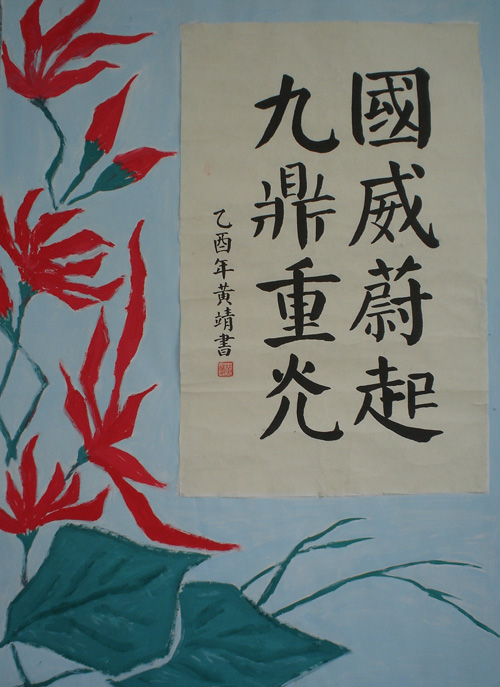 國威蔚起
九鼎重光
乙酉年黃靖書